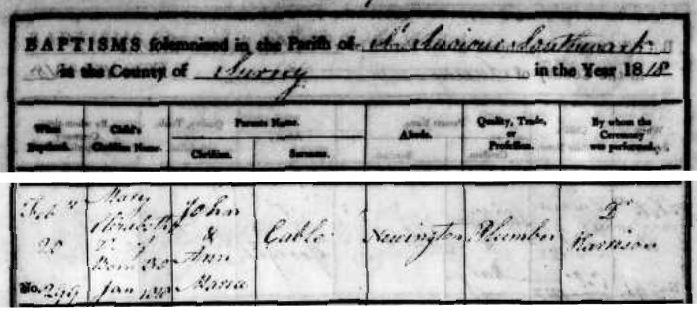 BAPTISMS solemnized in the Parish of St. Saviour Southwark
in the County of Surrey in the Year 1818
When Baptized. Child's Christian Name. Parents Name. Christian. Surname. Abode. Quality, Trade, or Profession. By whom the Ceremony was performed.
Feby
20
No. 299
Mary
Elizabeth
Born 30
Jan
John
&
Ann
Maria
Cable
Newington
Plumber
Dr
Harrison